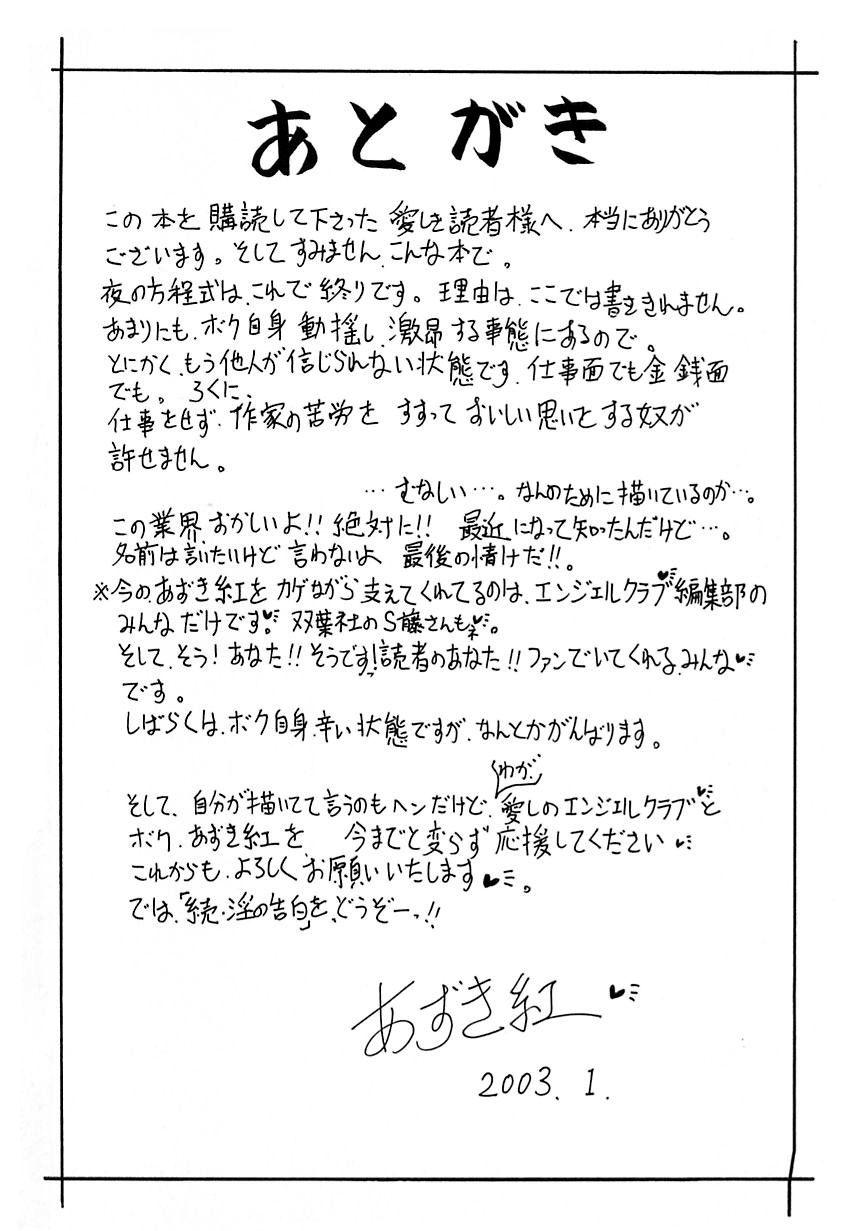 あとがき
この本を購読して下さった愛しき読者様へ、本当にありがとう
ございます。そしてすみません、こんな本で。
夜の方程式は、これで終りです。理由は、ここでは書ききれません。
あまりにも、ボク自身動揺し、激昂する事態にあるので。
とにかく、もう他人が信じられない状態です、仕事面でも金銭面
でも。ろくに、
仕事をせず、作家の苦労をすすっておいしい思いをする奴が
許せません。
…むなしい…。なんのために描いているのか…。
この業界、おかしいよ!!絶対に!!最近になって知ったんだけど…。
名前は言いたいけど言わないよ 最後の情けだ!!。
※今の、あずき紅をカゲながら支えてくれてるのは、エンジェルクラブ♥編集部の
みんなだけです♥。双葉社のS藤さんもネ♥。
そして、そう!あなた!!そうですっ!読者のあなた!!ファンでいてくれる、みんな♥
です。
しばらくは、ボク自身、辛い状態ですが、なんとかがんばります。
わが
そして、自分が描いてて言うのもヘンだけど、愛しのエンジェルクラブ♥と
ボク、あずき紅を、今までと変らず応援してください♥
これからも、よろしく、お願いいたします♥。
では、「続・淫の告白」を、どうぞーっ!!
あずき紅♥
2003.1.